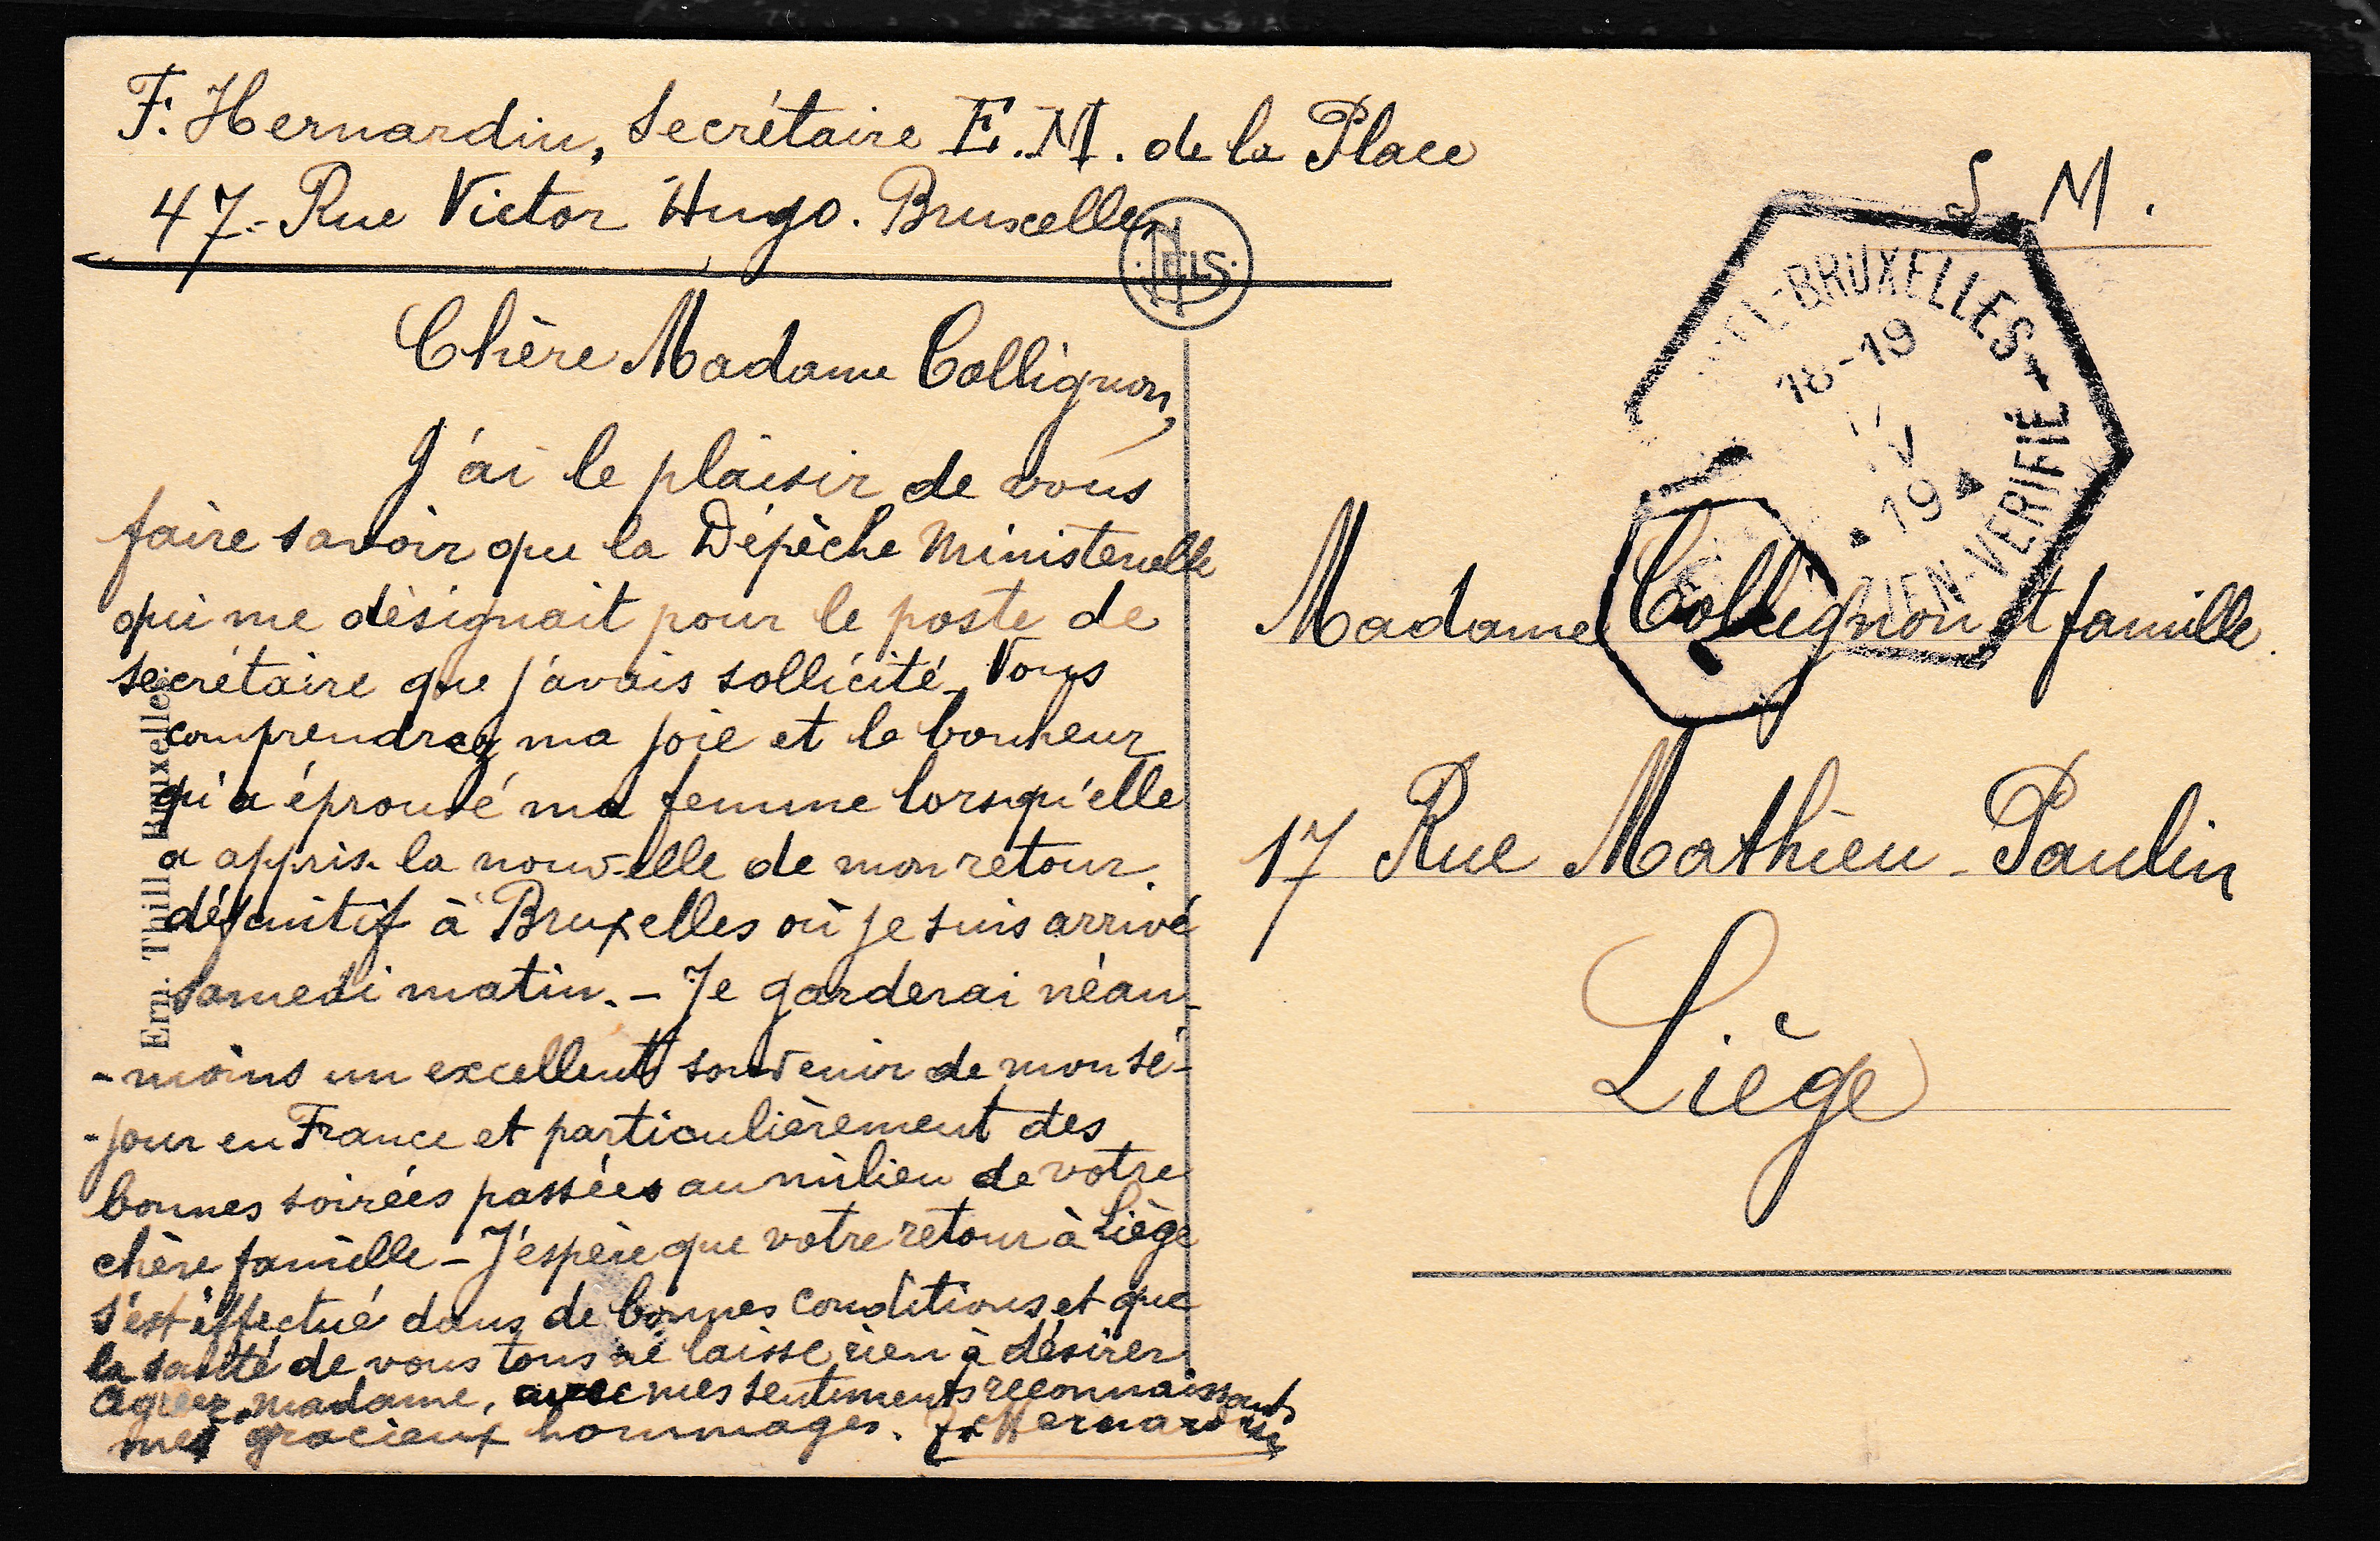 F. Hernardin, Secrétaire E.M. de la Place
47- Rue Victor Hugo. Bruxelles
NELS
S.M.
Chère Madame Collignon,
J'ai le plaisir de vous
faire savoir que la Dépèche Ministerielle
qui me désignait pour le poste de
secrétaire que j'avais sollicité. Vous
comprendrez ma joie et le bonheur
qu'a éprouvé ma femme lorsqu'elle
a appris la nouvelle de mon retour
définitif à Bruxelles où je suis arrivé
samedi matin. - Je garderai néan-
-moins un excellent souvenir de mon sé-
-jour en France et particulièrement des
bonnes soirées passées au milieu de votre
chère famille - J'espère que votre retour à Liège
s'est effectué dans de bonnes conditions et que
la santé de vous tous ne laisse rien à désirer
Agréez, madame, avec mes sentiments reconnaissants
mes gracieux hommages. Hernardin
Ern. Thill Bruxelles
BRUXELLES
18-19
V
19
VERIFIÉ
Madame Collignon et famille.
17 Rue Mathieu-Paulin
Liège